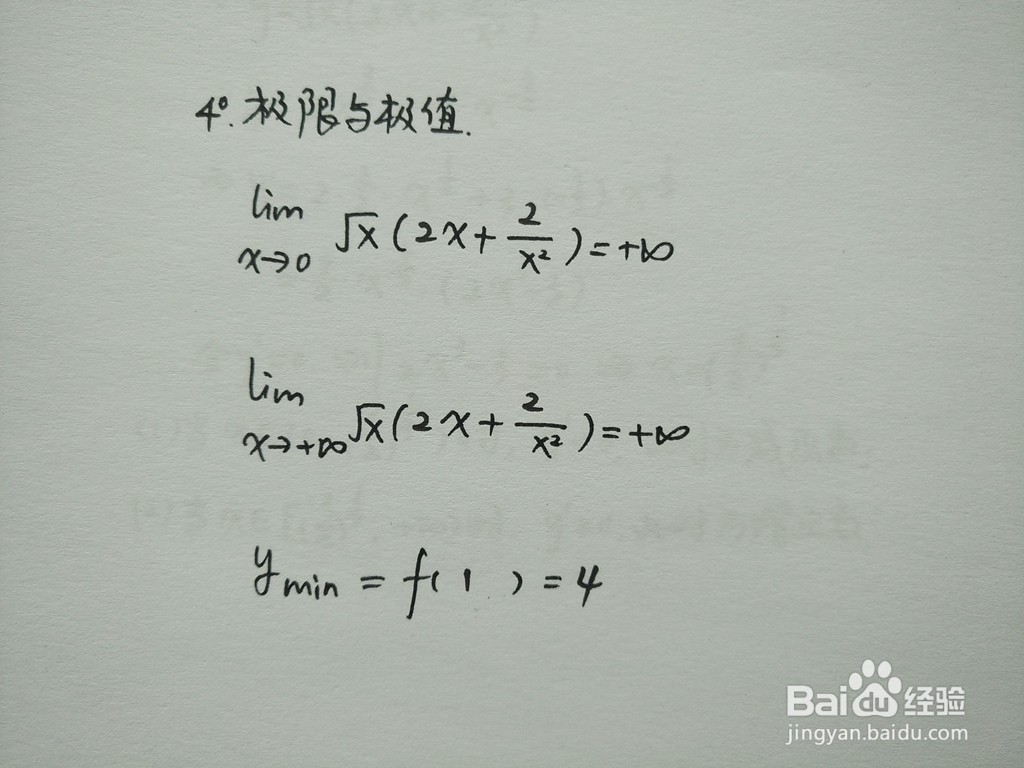 4°. 极限与极值.
lim x→0 √x(2x+2/x²)=+∞
lim x→+∞ √x(2x+2/x²)=+∞
y min = f(1)=4
Baidu经验
jingyan.baidu.com